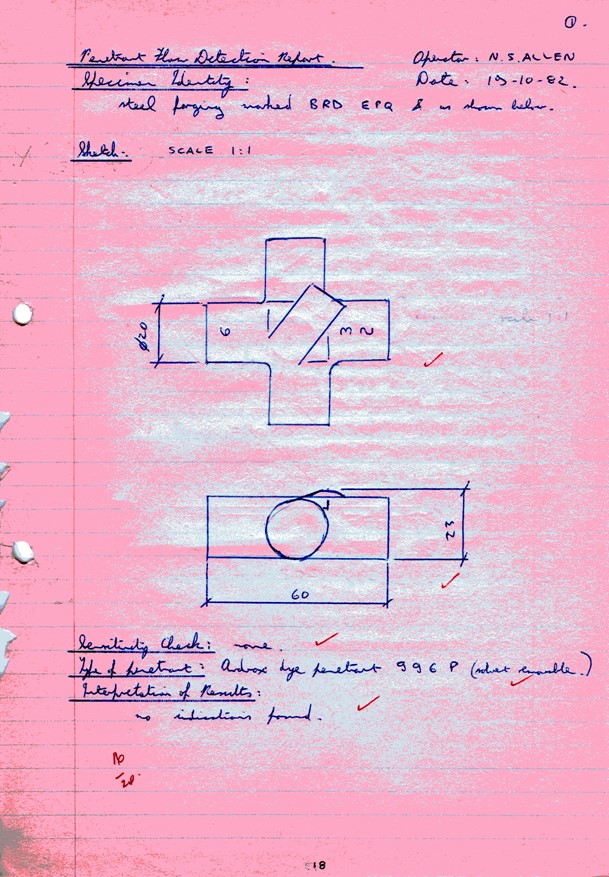 1.
Penetrant Flaw Detection Report. Operator: N.S.ALLEN
Specimen Identity: Date: 19-10-82.
steel forging marked BRD EPQ & as shown below.
Sketch. SCALE 1:1
ø20
6
3 2
scale 1:1
23
60
Sensitivity Check: none.
Type of penetrant: Ardrox dye penetrant 996 P (solvent removable.)
Interpretation of Results:
no indications found.
18